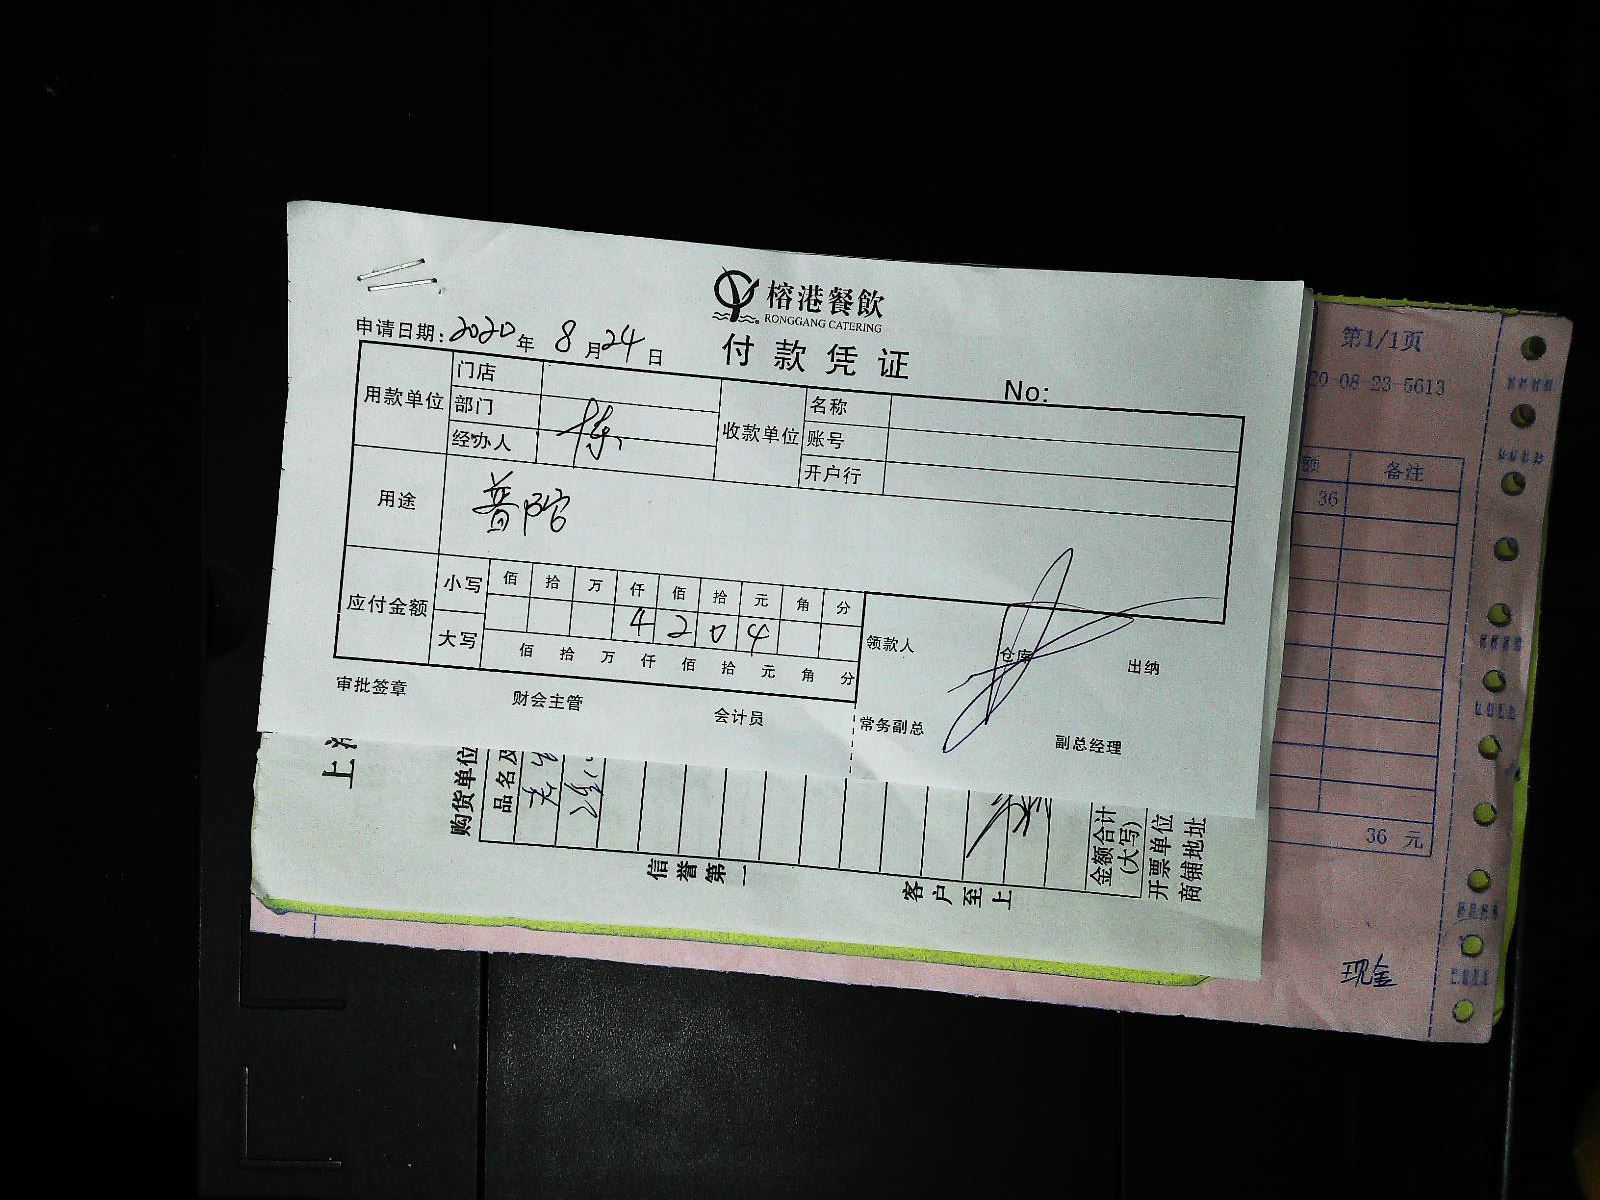 榕港餐飲
RONGGANG CATERING
付款凭证
申请日期:2020年8月24日
No:
用款单位 门店 收款单位 名称
部门 账号
经办人 开户行
用途 普陀
应付金额 小写 佰 拾 万 仟 佰 拾 元 角 分
4 2 0 4
大写 佰 拾 万 仟 佰 拾 元 角 分
领款人 仓库 出纳
审批签章 财会主管 会计员 常务副总 副总经理
上
购货单位
品名及
信誉第一
客户至上
金额合计
(大写)
开票单位
商铺地址
第1/1页
20-08-23-5613
额 备注
36
36 元
现金